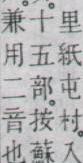 里紙屯村入
十五部。按蘇
兼用二音也